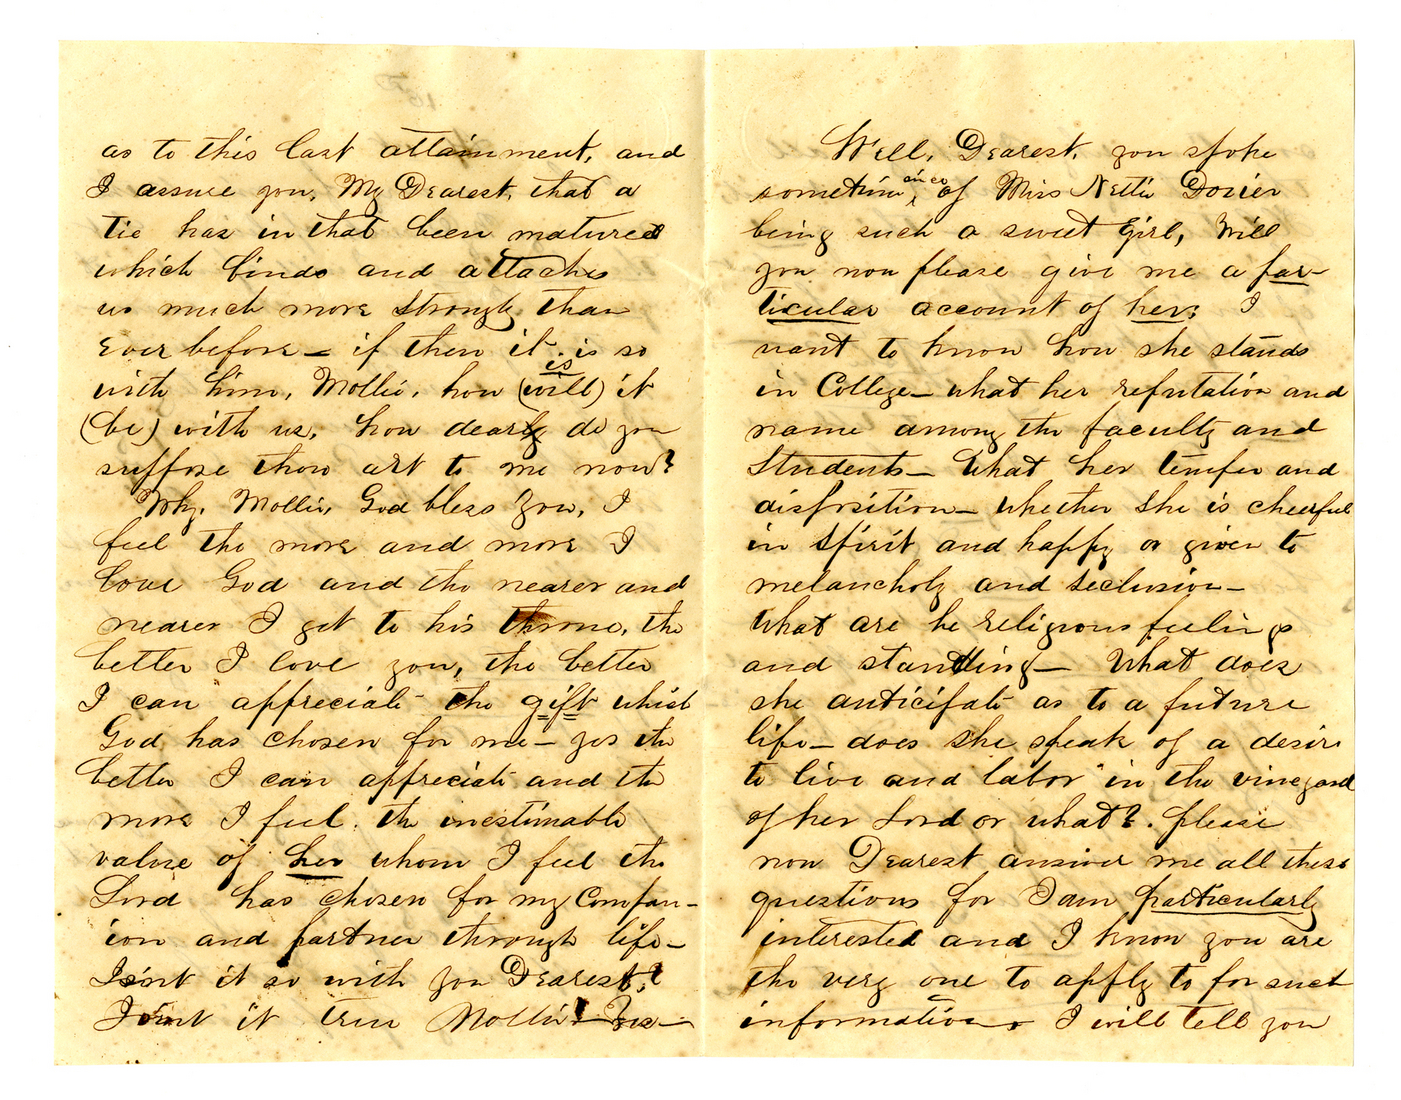 as to this last attainment, and
I assure you, My Dearest, that a
tie has in that been matured
which binds and attaches
us much more strongly than
ever before — if then it is so
with him, Mollie, how (will) is it
(be) with us, how dearly do you
suppose thou art to me now?
Why, Mollie, God bless you, I
feel the more and more I
love God and the nearer and
nearer I get to his throne, the
better I love you, the better
I can appreciate the gift which
God has chosen for me — yes the
better I can appreciate and the
more I feel the inestimable
value of her whom I feel the
Lord has chosen for my Compan-
ion and partner through life —
Isint it so with you Dearest,?
Isint it true Mollie? Yes —
Well, Dearest, you spoke
sometime since of Miss Nettie Dozier
being such a sweet girl, Will
you now please give me a par-
ticular account of her; I
want to know how she stands
in College — what her reputation and
name among the faculty and
Students — What her temper and
disposition — whether she is cheerful
in spirit and happy or given to
melancholy and seclusion —
What are he religious feelings
and standing — What does
she anticipate as to a future
life — does she speak of a desire
to live and labor "in the vineyard
of her Lord or what?. please
now Dearest answer me all these
questions for I am particularly
interested and I know you are
the very one to apply to for such
information. I will tell you